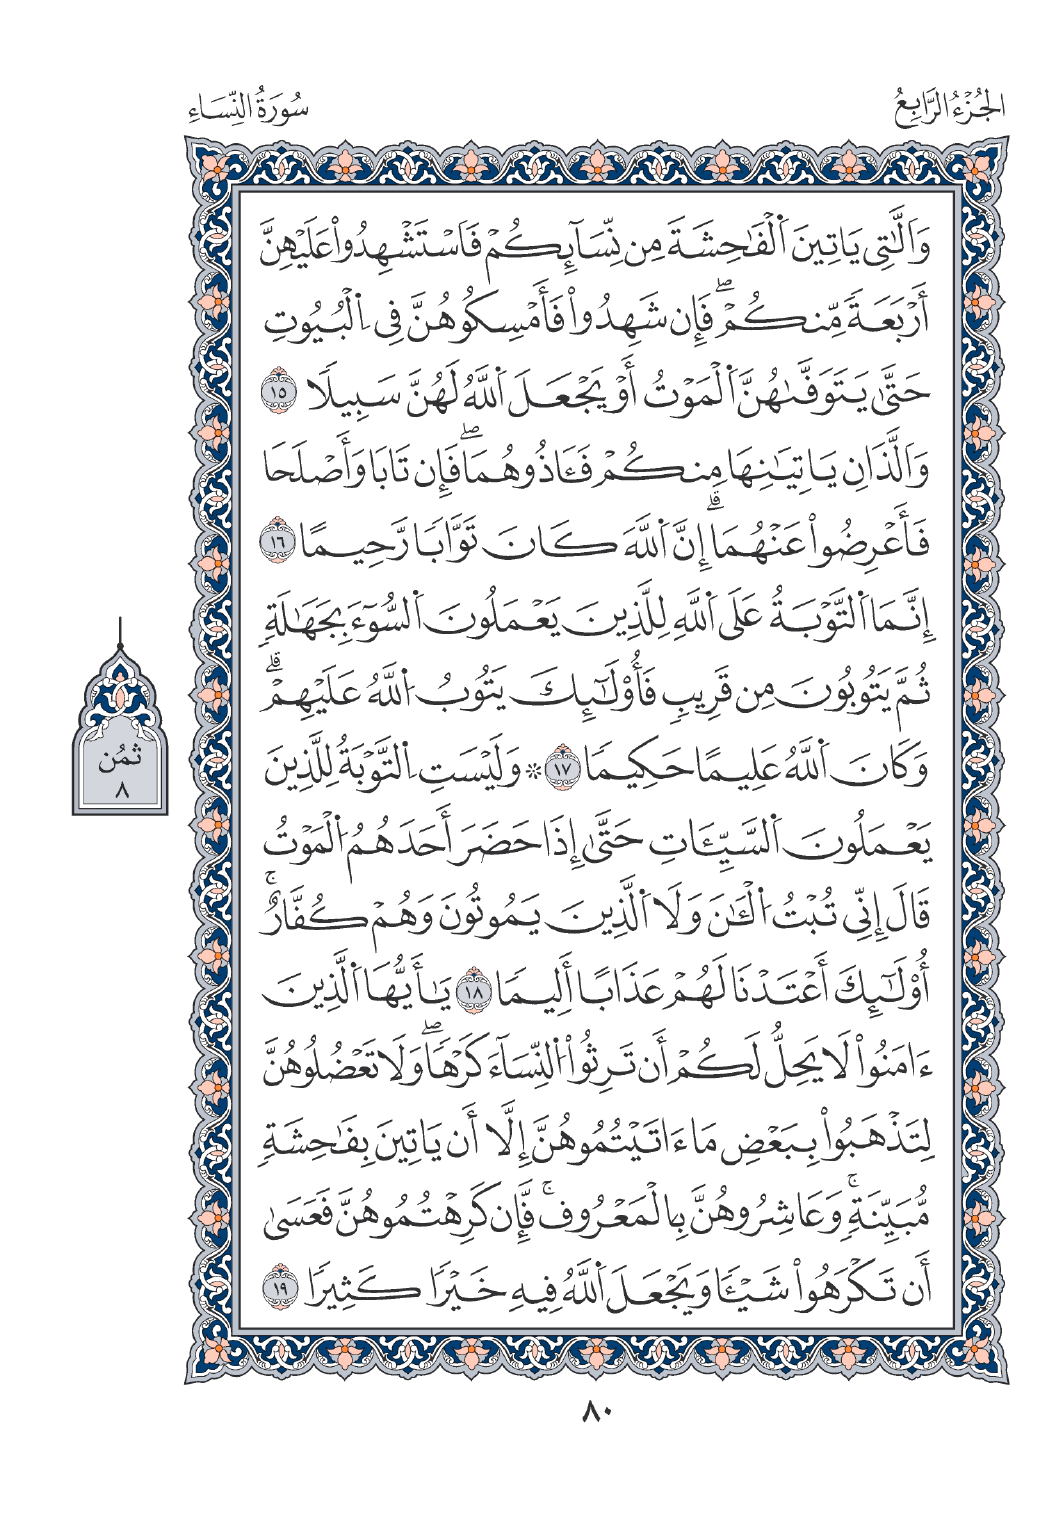 الجُزْءُ الرَّابِعُ
سُورَةُ النِّسَاءِ
وَالَّٰتِى يَاتِينَ اَلْفَٰحِشَةَ مِن نِّسَآئِكُمْ فَاسْتَشْهِدُواْ عَلَيْهِنَّ
أَرْبَعَةً مِّنكُمْۖ فَإِن شَهِدُواْ فَأَمْسِكُوهُنَّ فِى اِلْبُيُوتِ
حَتَّىٰ يَتَوَفَّىٰهُنَّ اَلْمَوْتُ أَوْ يَجْعَلَ اَللَّهُ لَهُنَّ سَبِيلًا ١٥
وَالَّذَانِ يَاتِيَٰنِهَا مِنكُمْ فَـَٔاذُوهُمَاۖ فَإِن تَابَا وَأَصْلَحَا
فَأَعْرِضُواْ عَنْهُمَاۗ إِنَّ اَللَّهَ كَانَ تَوَّابًا رَّحِيمًا ١٦
إِنَّمَا اَلتَّوْبَةُ عَلَى اَللَّهِ لِلَّذِينَ يَعْمَلُونَ اَلسُّوٓءَ بِجَهَٰلَةٍ
ثُمَّ يَتُوبُونَ مِن قَرِيبٍ فَأُوْلَٰٓئِكَ يَتُوبُ اُللَّهُ عَلَيْهِمْۗ
وَكَانَ اَللَّهُ عَلِيمًا حَكِيمًا ١٧ ۞ وَلَيْسَتِ اِلتَّوْبَةُ لِلَّذِينَ
يَعْمَلُونَ اَلسَّيِّـَٔاتِ حَتَّىٰ إِذَا حَضَرَ أَحَدَهُمُ اُلْمَوْتُ
قَالَ إِنِّى تُبْتُ اُلْـَٰٔنَ وَلَا اَلَّذِينَ يَمُوتُونَ وَهُمْ كُفَّارٌۚ
أُوْلَٰٓئِكَ أَعْتَدْنَا لَهُمْ عَذَابًا أَلِيمًا ١٨ يَٰأَيُّهَا اَلَّذِينَ
ءَامَنُواْ لَا يَحِلُّ لَكُمْ أَن تَرِثُواْ اُلنِّسَآءَ كَرْهًاۖ وَلَا تَعْضُلُوهُنَّ
لِتَذْهَبُواْ بِبَعْضِ مَا ءَاتَيْتُمُوهُنَّ إِلَّا أَن يَاتِينَ بِفَٰحِشَةٍ
مُّبَيِّنَةٍۚ وَعَاشِرُوهُنَّ بِالْمَعْرُوفِۚ فَإِن كَرِهْتُمُوهُنَّ فَعَسَىٰ
أَن تَكْرَهُواْ شَيْـًٔا وَيَجْعَلَ اَللَّهُ فِيهِ خَيْرًا كَثِيرًا ١٩
ثُمُن
٨
٨٠